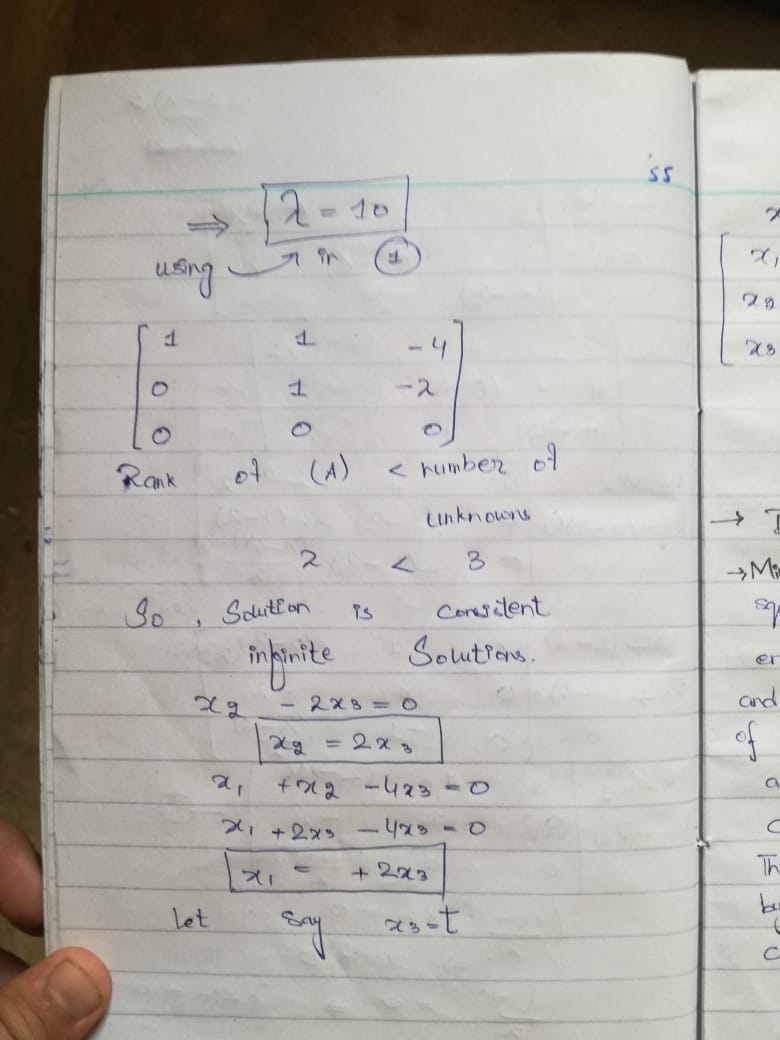 55
⇒ λ = 10
using ↗ in ①
1 1 -4
0 1 -2
0 0 0
Rank of (A) < number of
unknowns
2 < 3
So, Solution is consistent
infinite Solutions.
x2 - 2x3 = 0
x2 = 2x3
x1 + x2 - 4x3 = 0
x1 + 2x3 - 4x3 = 0
x1 = + 2x3
Let say x3 = t
x1
x2
x3
→
→
and
of